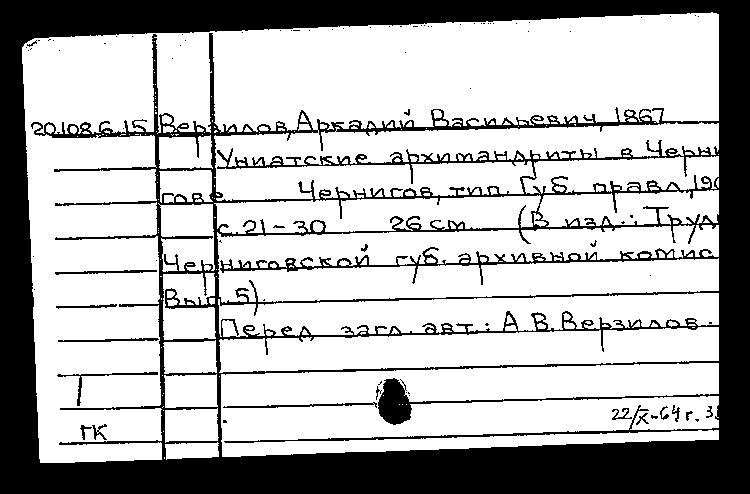 20.108.6.15 Верзилов, Аркадий Васильевич, 1867
Униатские архимандриты в Черни
гове Чернигов, тип. Губ. правл., 190
с. 21-30 26 см (В изд.: Труды
Черниговской губ. архивной комис
Вып. 5).
Перед загл. авт.: А.В. Верзилов.
1
22/X-64 г.
ГК